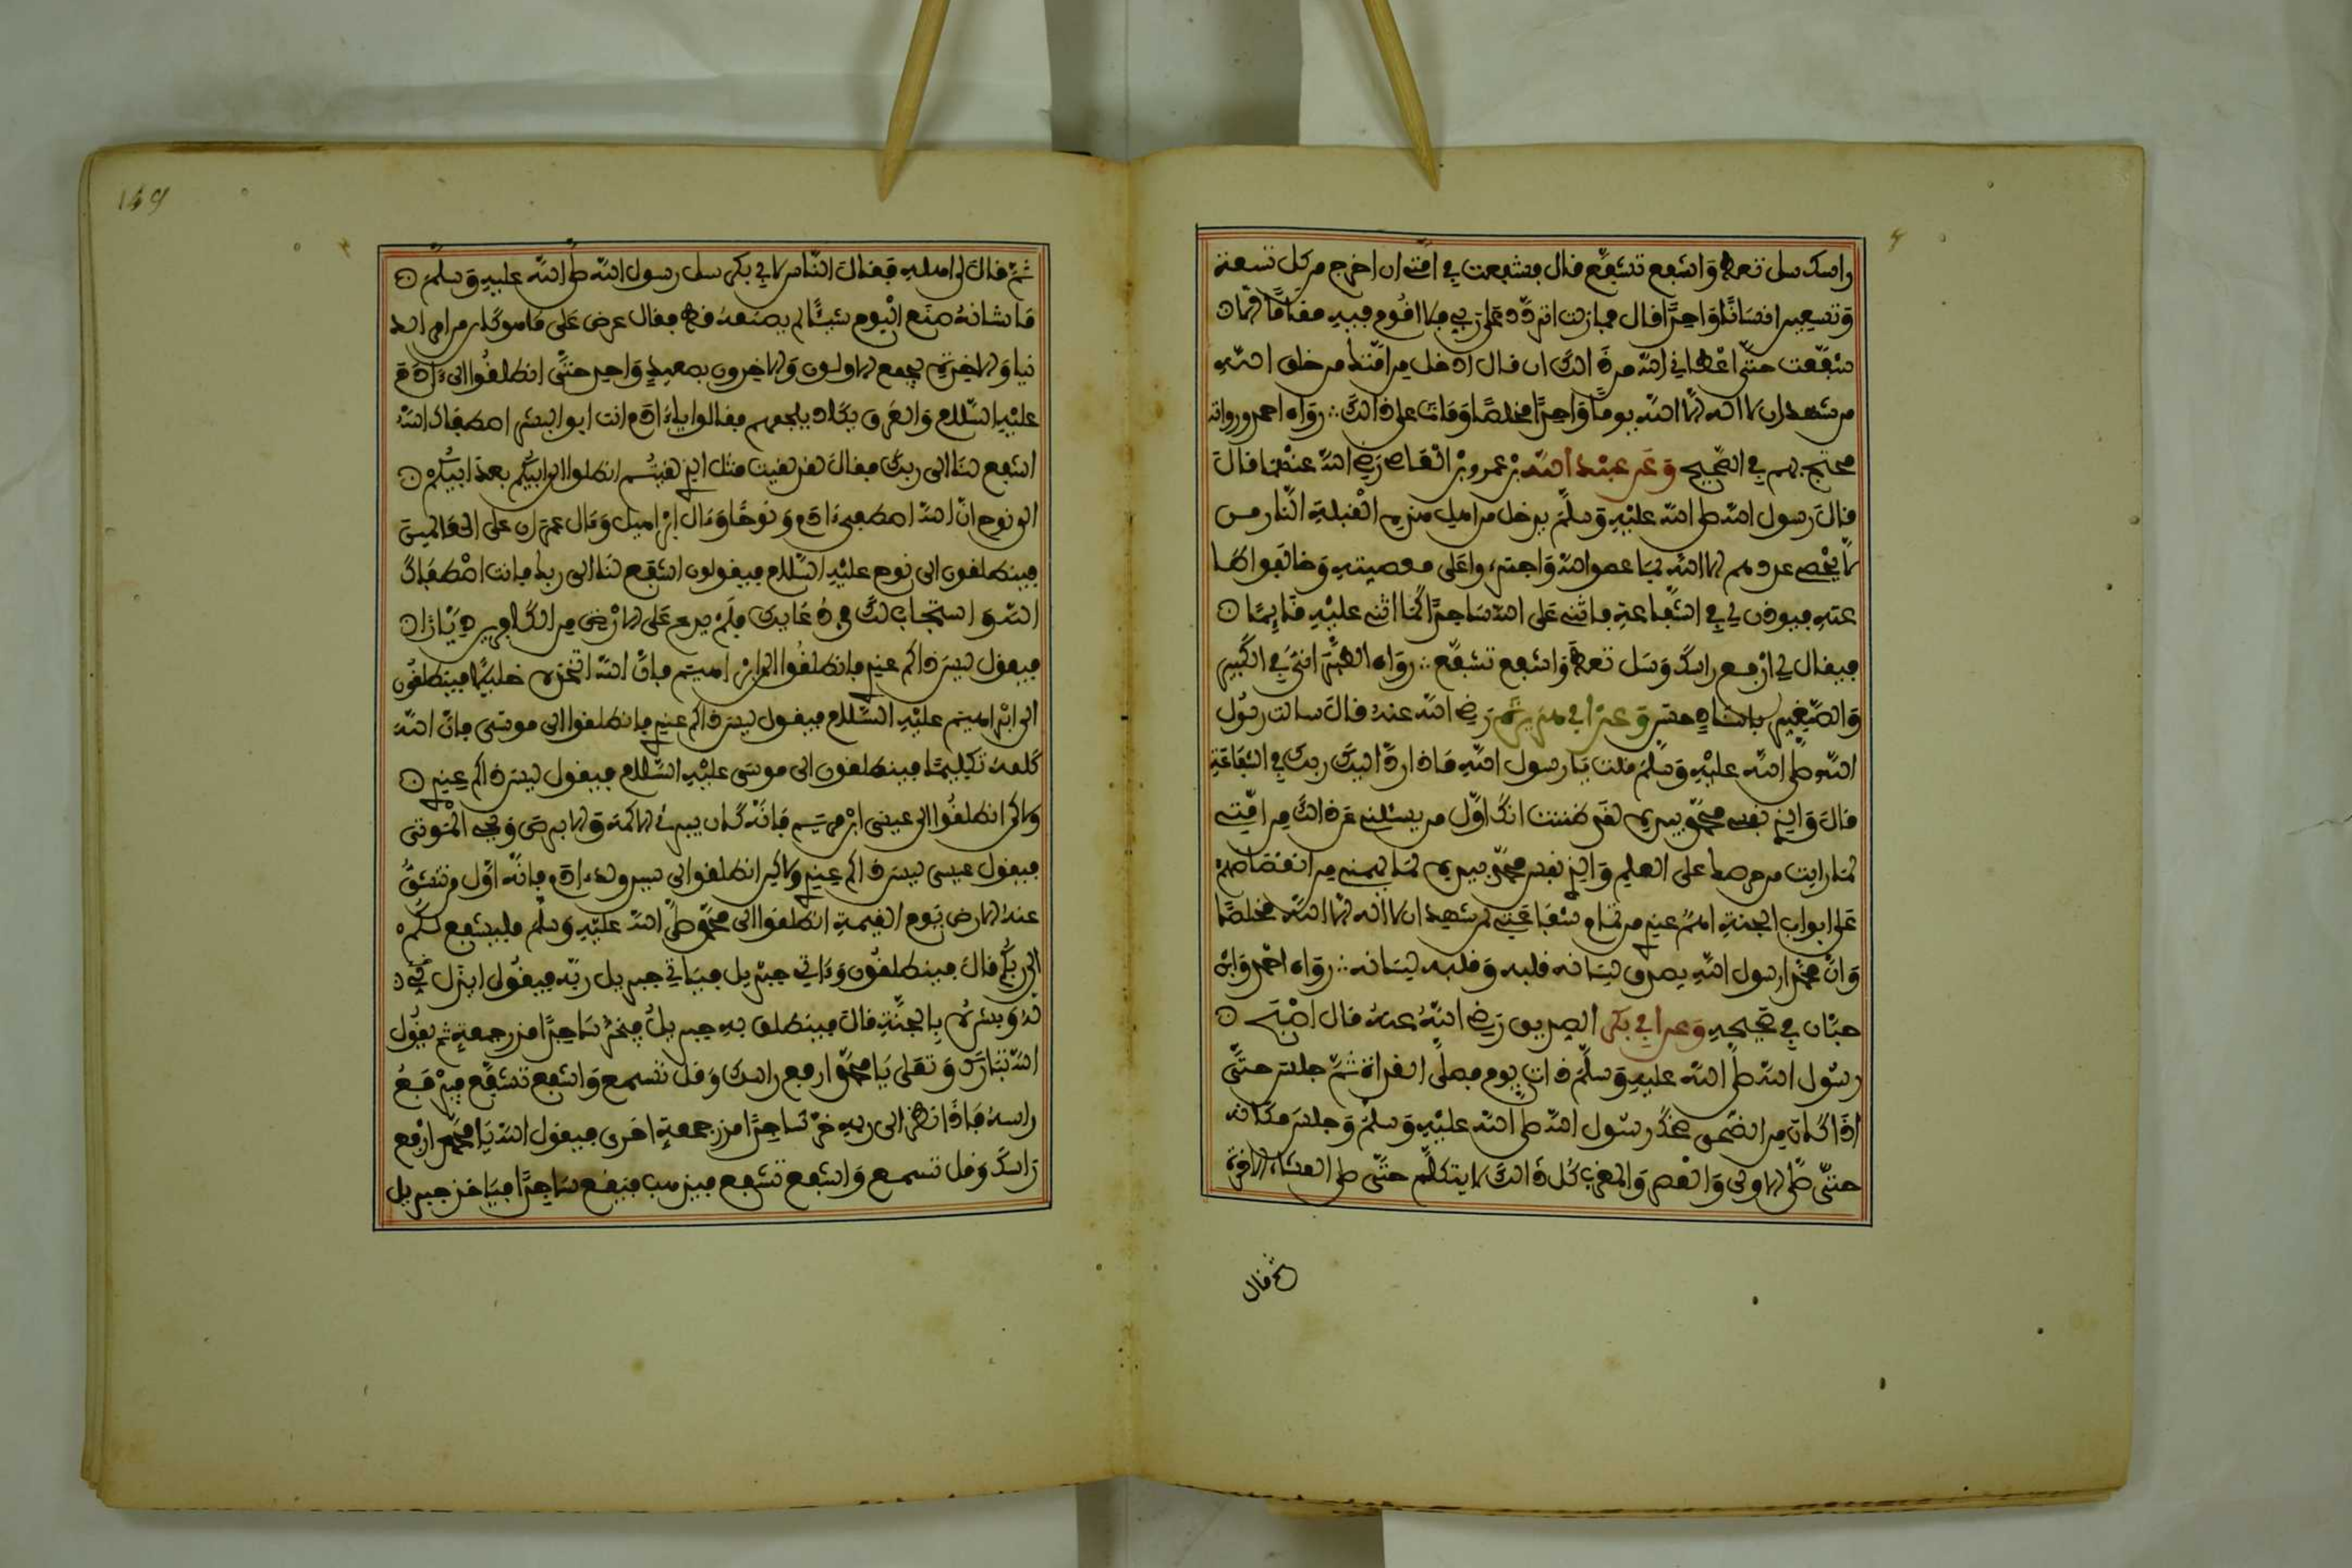 راسك سل تعطه واشفع تشفع قال فشفعت في امتي ان اخرج من كل تسعة
وتسعين انسانا واحدا قال فما زلت اتردد على ربي فلا اقوم فيه مقاما الا
شفعت حتى اعطاني الله من ذالك ان قال ادخل من امتك من خلق الله
من شهد ان لا اله الا الله يوما واحدا مخلصا ومات على ذالك ∴ رواه احمد ورواته
محتج بهم في الصحيح وعن عبد الله بن عمرو بن العاص رضي الله عنهما قال
قال رسول الله صلى الله عليه وسلم يدخل من اهل هذه القبلة النار من
لا يحصي عددهم الا الله بما عصوا الله واجتروا على معصيته وخالفوا طا
عته فيوذن لي في الشفاعة فاثني على الله ساجدا كما اثني عليه قايما
فيقال لي ارفع راسك وسل تعطه واشفع تشفع ∴ رواه الطبراني في الكبير
والصغير باسناد حسن وعن ابي هريرة رضي الله عنه قال سالت رسول
الله صلى الله عليه وسلم قلت يا رسول الله ماذا رد اليك ربك في الشفاعة
قال والذي نفس محمد بيده لقد ظننت انك اول من يسئلني عن ذالك من امتي
لما رايت من حرصك على العلم والذي نفس محمد بيده لما يهمني من انقضاضهم
على ابواب الجنة اهم عندي من تمام شفاعتي لمن شهد ان لا اله الا الله مخلصا
وان محمدا رسول الله يصدق لسانه قلبه وقلبه لسانه ∴ رواه احمد وابن
حبان في صحيحه وعن ابي بكر الصديق رضي الله عنه قال اصبح
رسول الله صلى الله عليه وسلم ذات يوم فصلى الغداة ثم جلس حتى
اذا كان من الضحى ضحك رسول الله صلى الله عليه وسلم وجلس مكانه
حتى صلى الاولى والعصر والمغرب كل ذالك لا يتكلم حتى صلى العشاء الاخرة
ثم قال
149
ثم قال الى اهله فقال الناس لابي بكر سل رسول الله صلى الله عليه وسلم
ما شانه صنع اليوم شيئا لم يصنعه قط فقال عرض علي ما هو كاين من امر الد
نيا والاخرة يجمع الاولون والاخرون بصعيد واحد حتى انطلقوا الى ءادم
عليه السلام والعرق يكاد يلجمهم فقالوا ياءادم انت ابو البشر اصطفاك الله
اشفع لنا الى ربك فقال لقد لقيت مثل الذي لقيتم انطلقوا الى ابيكم بعد ابيكم
الى نوح ان الله اصطفى ءادم ونوحا وءال ابراهيم وءال عمران على العالمين
فينطلقون الى نوح عليه السلام فيقولون اشفع لنا الى ربك فانت اصطفاك
الله واستجاب لك في دعايك فلم يدع على الارض من الكافرين ديارا
فيقول ليس ذاكم عندي فانطلقوا الى ابراهيم فان الله اتخذه خليلا فينطلقون
الى ابراهيم عليه السلام فيقول ليس ذاكم عندي فانطلقوا الى موسى فان الله
كلمه تكليما فينطلقون الى موسى عليه السلام فيقول ليس ذاكم عندي
ولاكن انطلقوا الى عيسى ابن مريم فانه كان يبرئ الاكمه والابرص ويحي الموتى
فيقول عيسى ليس ذاكم عندي ولاكن انطلقوا الى سيد ولد ءادم فانه اول من تنشق
عنه الارض يوم القيمة انطلقوا الى محمد صلى الله عليه وسلم فليشفع لكم
الى ربكم قال فينطلقون وءاتي جبريل فياتي جبريل ربه فيقول ايذن
له وبشره بالجنة قال فينطلق به جبريل فيخر ساجدا قدر جمعة ثم يقول
الله تبارك وتعلى يا محمد ارفع راسك وقل تسمع واشفع تشفع فيرفع
راسه فاذا نظر الى ربه خر ساجدا قدر جمعة اخرى فيقول الله يا محمد ارفع
راسك وقل تسمع واشفع تشفع فيذهب فيقع ساجدا فياخذ جبريل